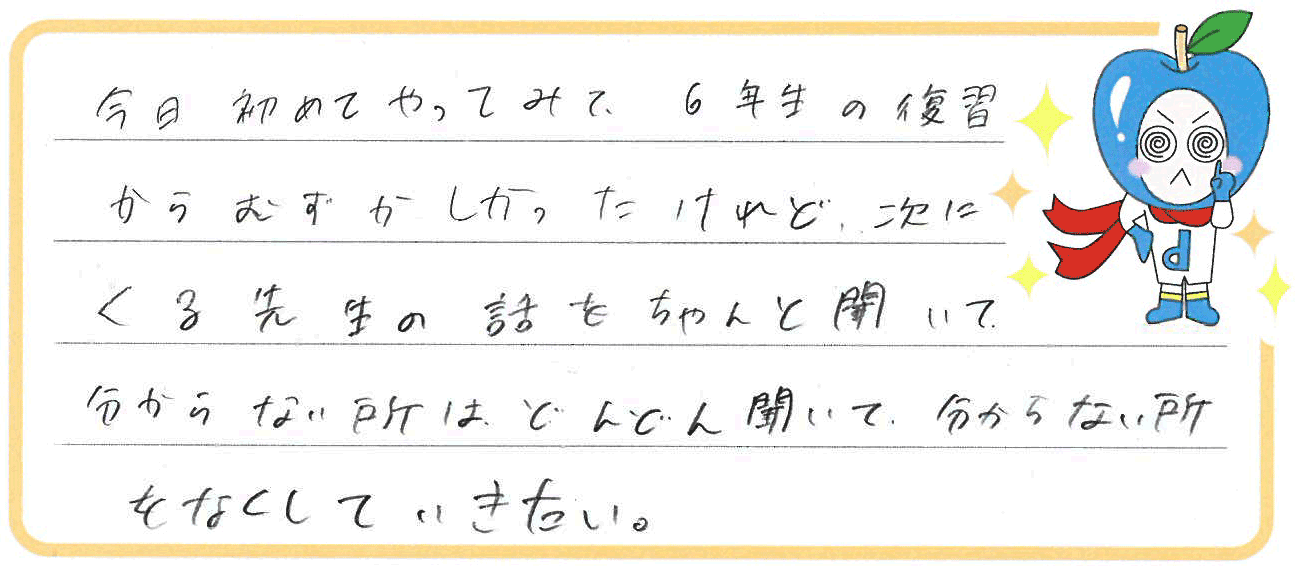 今日初めてやってみて、6年生の復習
からむずかしかったけれど、次に
くる先生の話をちゃんと聞いて、
分からない所は、どんどん聞いて、分からない所
をなくしていきたい。
d